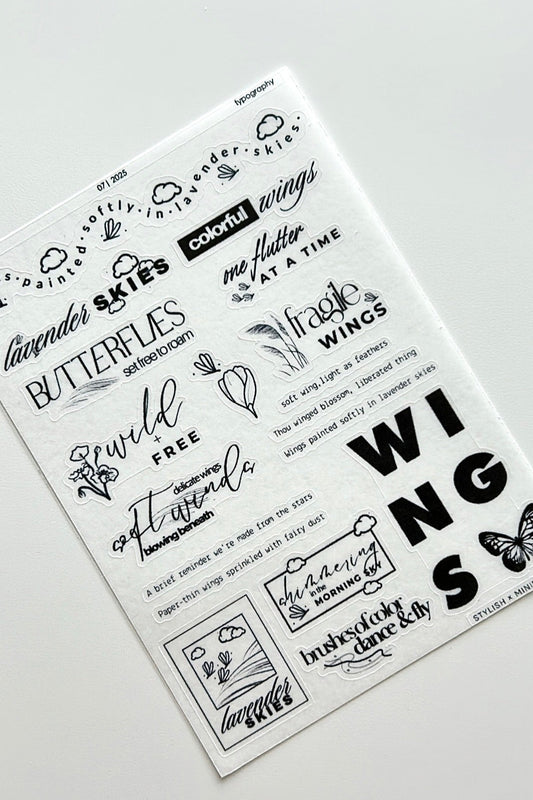 typography
07 | 2025
s•painted•softly•in•lavender•skies•
colorful wings
lavender SKIES
one flutter
AT A TIME
BUTTERFLIES
set free to roam
fragile
WINGS
wild
+
FREE
soft wing, light as feathers
Thou winged blossom, liberated thing
Wings painted softly in lavender skies
delicate wings
soft winds
blowing beneath
WI
NG
S
A brief reminder we're made from the stars
Paper-thin wings sprinkled with fairy dust
shimmering
in the
MORNING SKY
brushes of color
dance & fly
lavender
SKIES
STYLISH × MINI